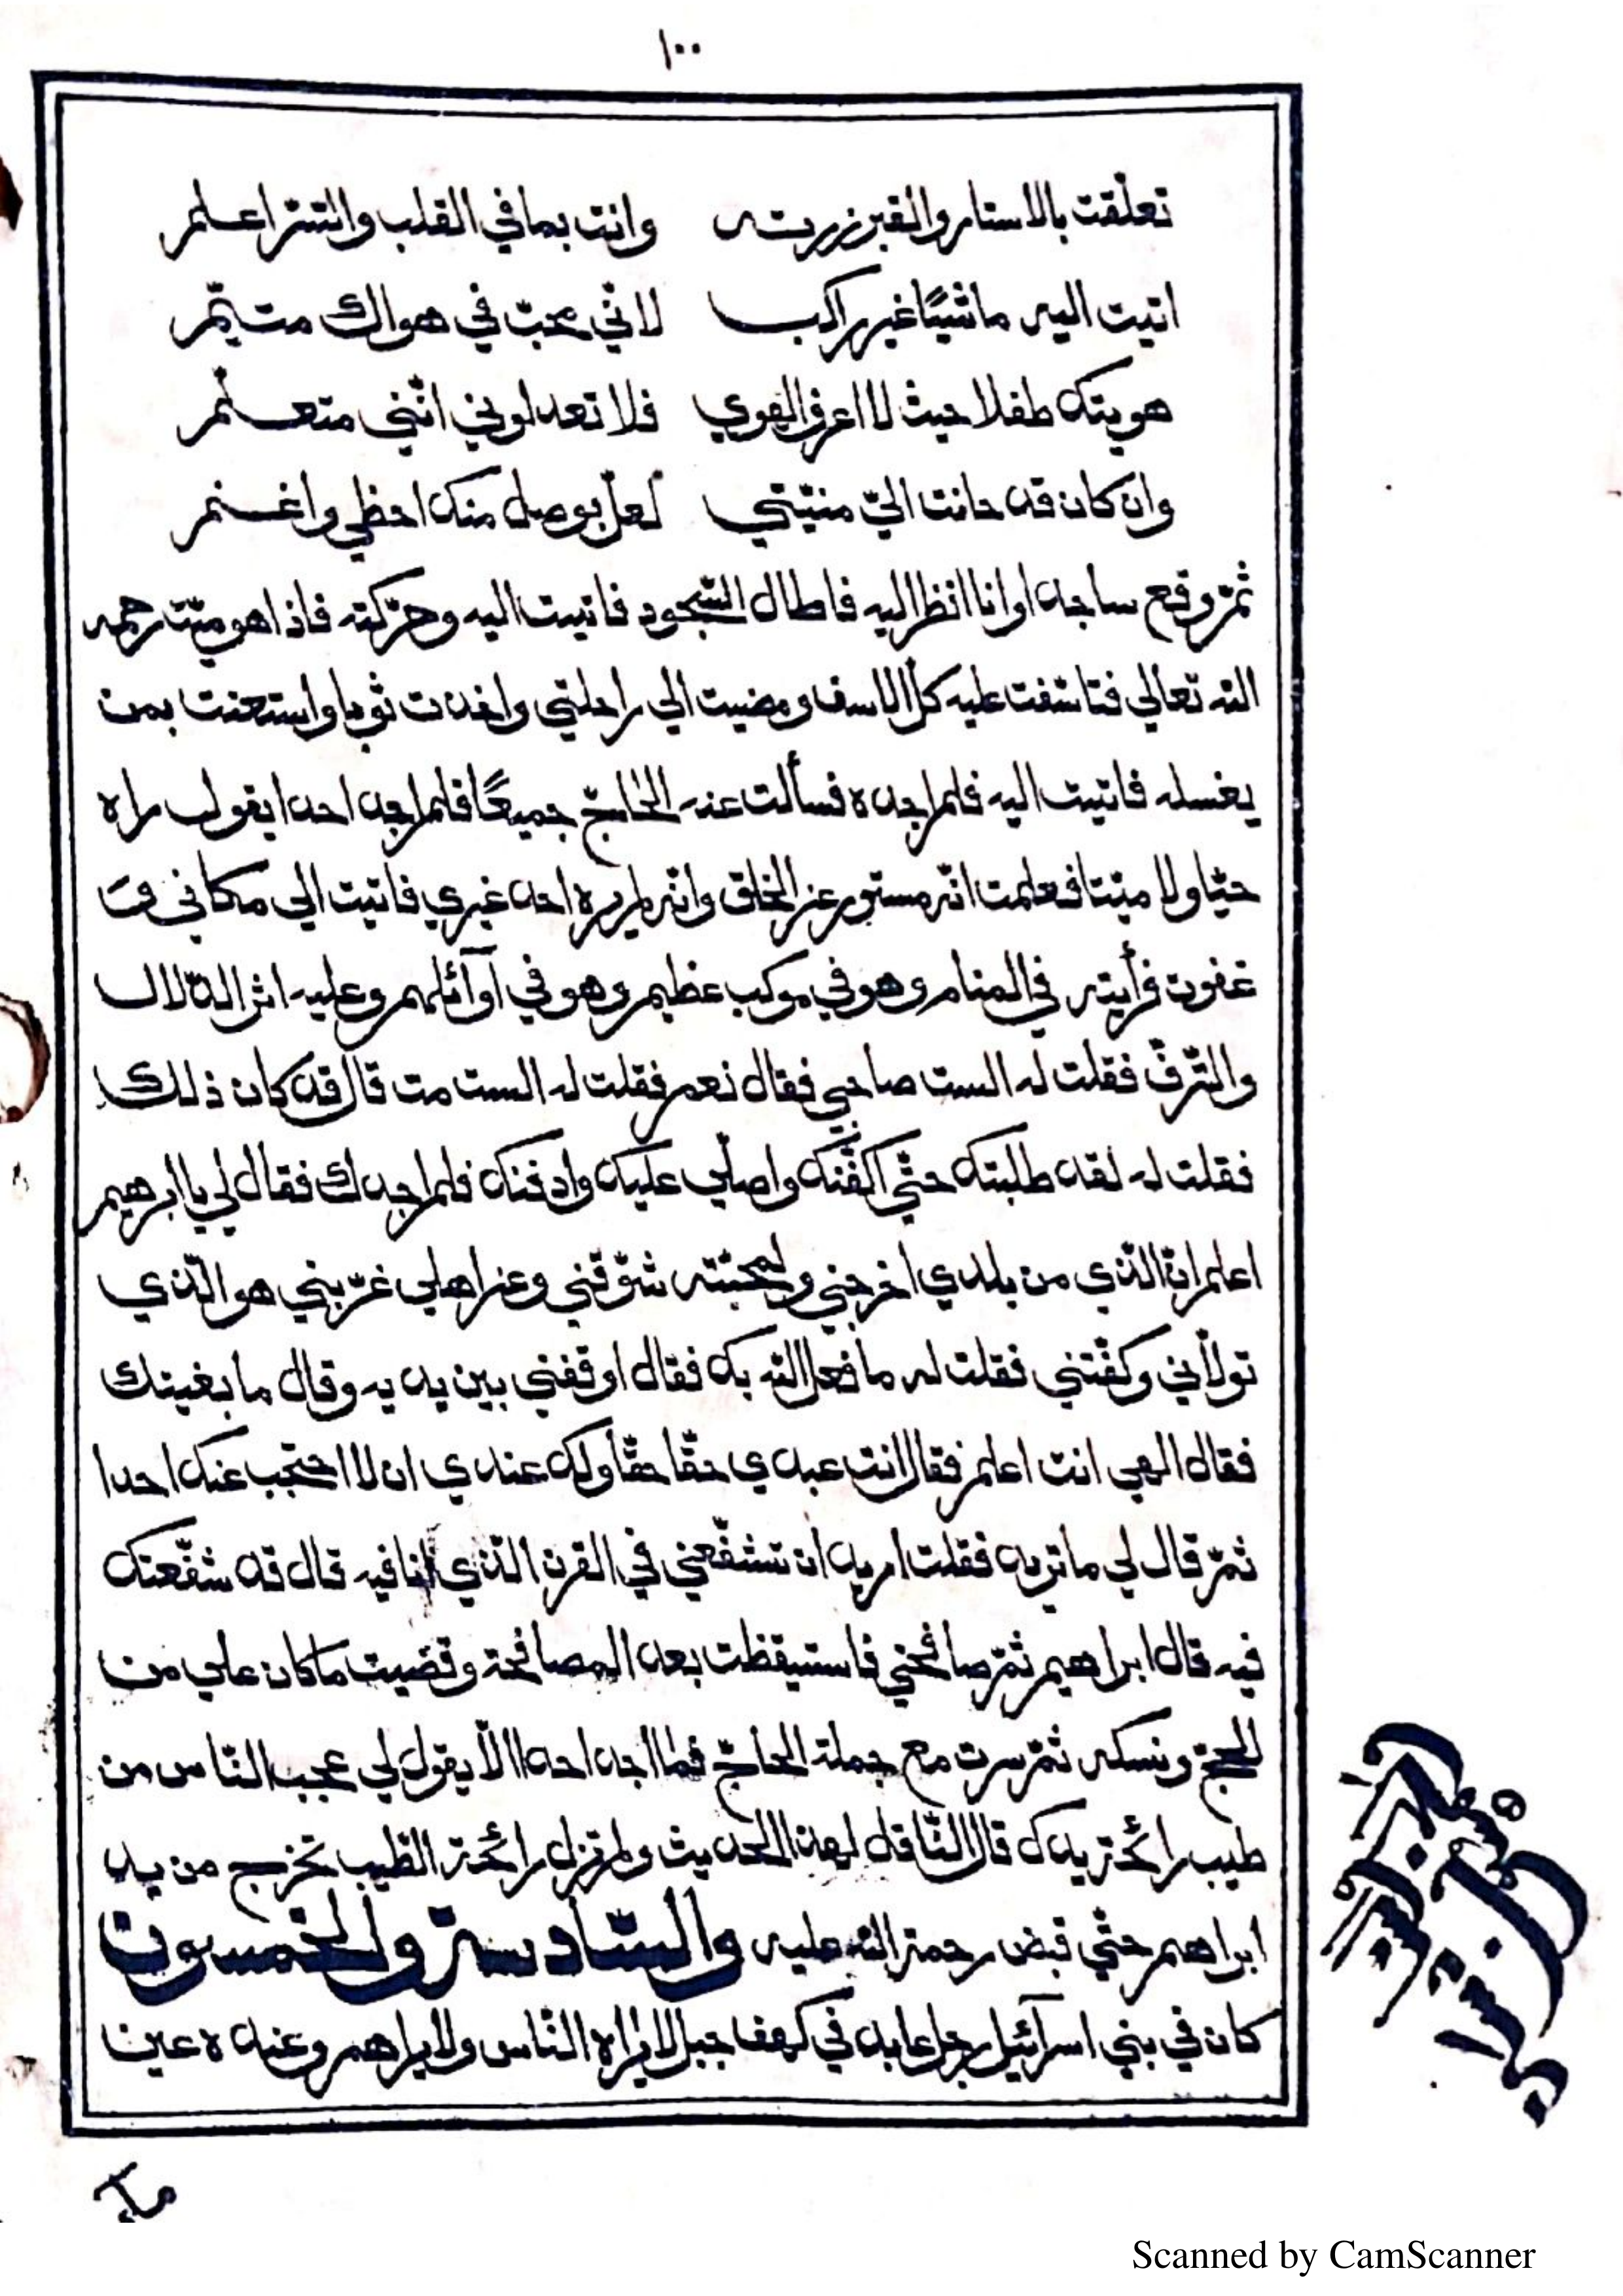 ١٠٠
تعلّقت بالاستار والقبر زرته وانت بما في القلب والسّرّ اعلم
اتيت اليه ماشيًا غير راكب لانّي محبّ في هواك متيّم
هويتك طفلا حيث لا اعرف الهوي فلا تعدلوني انّني متعلّم
وان كان قد حانت اليّ منيّتي لعلّ بوصل منك احظي واغنم
ثمّ وقع ساجدا وانا انظر اليه فاطال السّجود فاتيت اليه وحرّكته فاذا هو ميّت رحمه
الله تعالي فتاسّفت عليه كلّ الاسف ومضيت الي راحلتي واخدت ثوبا واستعنت بمن
يغسله فاتيت اليه فلم اجده فسألت عنه الحاجّ جميعًا فلم اجد احدا يقول راه
حيّا ولا ميّتا فعلمت انّه مستور عن الخلق وانّه لم يره احد غيري فاتيت الي مكاني فت
غفوت فرأيته في المنام وهو في موكب عظيم وهو في آوآئلهم وعليه اثر الدّلال
والتّرفّ فقلت له الست صاحبي فقال نعم فقلت له الست مت قال قد كان ذلك
فقلت له لقد طلبتك حتّي اكفّنك واصلّي عليك وادفنك فلم اجدك فقال لي يا ابرهيم
اعلم انّ الّذي من بلدي اخرجني ولمحبّته شوّقني وعن اهلي غرّبني هو الّذي
تولّاني وكفّنني فقلت له ما فعل الله بك فقال اوقفني بين يديه وقال ما بغيتك
فقال الهي انت اعلم فقال انت عبدي حقّا حقّا ولك عندي ان لا احتجب عنك احدا
ثمّ قال لي ما تريد فقلت اريد ان تشفّعني في القرن الّذي انا فيه قال قد شفّعتك
فيه قال ابراهيم ثمّ صافحني فاستيقظت بعد المصافحة وقضيت ما كان علي من
الحجّ ونسكه ثمّ سرت مع جملة الحاجّ فما اجد احدا الّا يقول لي عجب النّاس من
طيب رائحة يدك قال النّاقل لهذا الحديث ولم تزل رائحة الطّيب تخرج من يد
ابراهم حتّي قبض رحمة الله عليه والسّادسة والخمسون
كان في بني اسرآئيل رجل عابد في كهف جبل لا يراه النّاس ولا يراهم وعنده عين